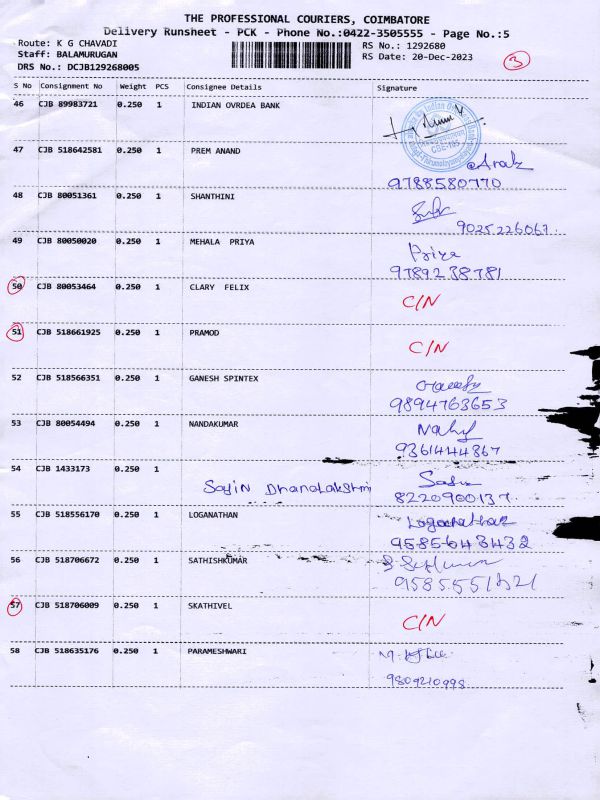 THE PROFESSIONAL COURIERS, COIMBATORE
Delivery Runsheet - PCK - Phone No.:0422-3505555 - Page No.:5
Route: K G CHAVADI RS No.: 1292680
Staff: BALAMURUGAN RS Date: 20-Dec-2023 3
DRS No.: DCJB129268005
S No Consignment No Weight PCS Consignee Details Signature
46 CJB 89983721 0.250 1 INDIAN OVRDEA BANK
47 CJB 518642581 0.250 1 PREM ANAND
9788580770
48 CJB 80051361 0.250 1 SHANTHINI
9025226067.
49 CJB 80050020 0.250 1 MEHALA PRIYA Priya
9789238781
50 CJB 80053464 0.250 1 CLARY FELIX C/N
51 CJB 518661925 0.250 1 PRAMOD C/N
52 CJB 518566351 0.250 1 GANESH SPINTEX
9894763653
53 CJB 80054494 0.250 1 NANDAKUMAR
9361444867
54 CJB 1433173 0.250 1
Sojin Dhanalakshmi
8220900137.
55 CJB 518556170 0.250 1 LOGANATHAN Loganathan
9585643432
56 CJB 518706672 0.250 1 SATHISHKUMAR
57 CJB 518706009 0.250 1 SKATHIVEL C/N
58 CJB 518635176 0.250 1 PARAMESHWARI
9809210998